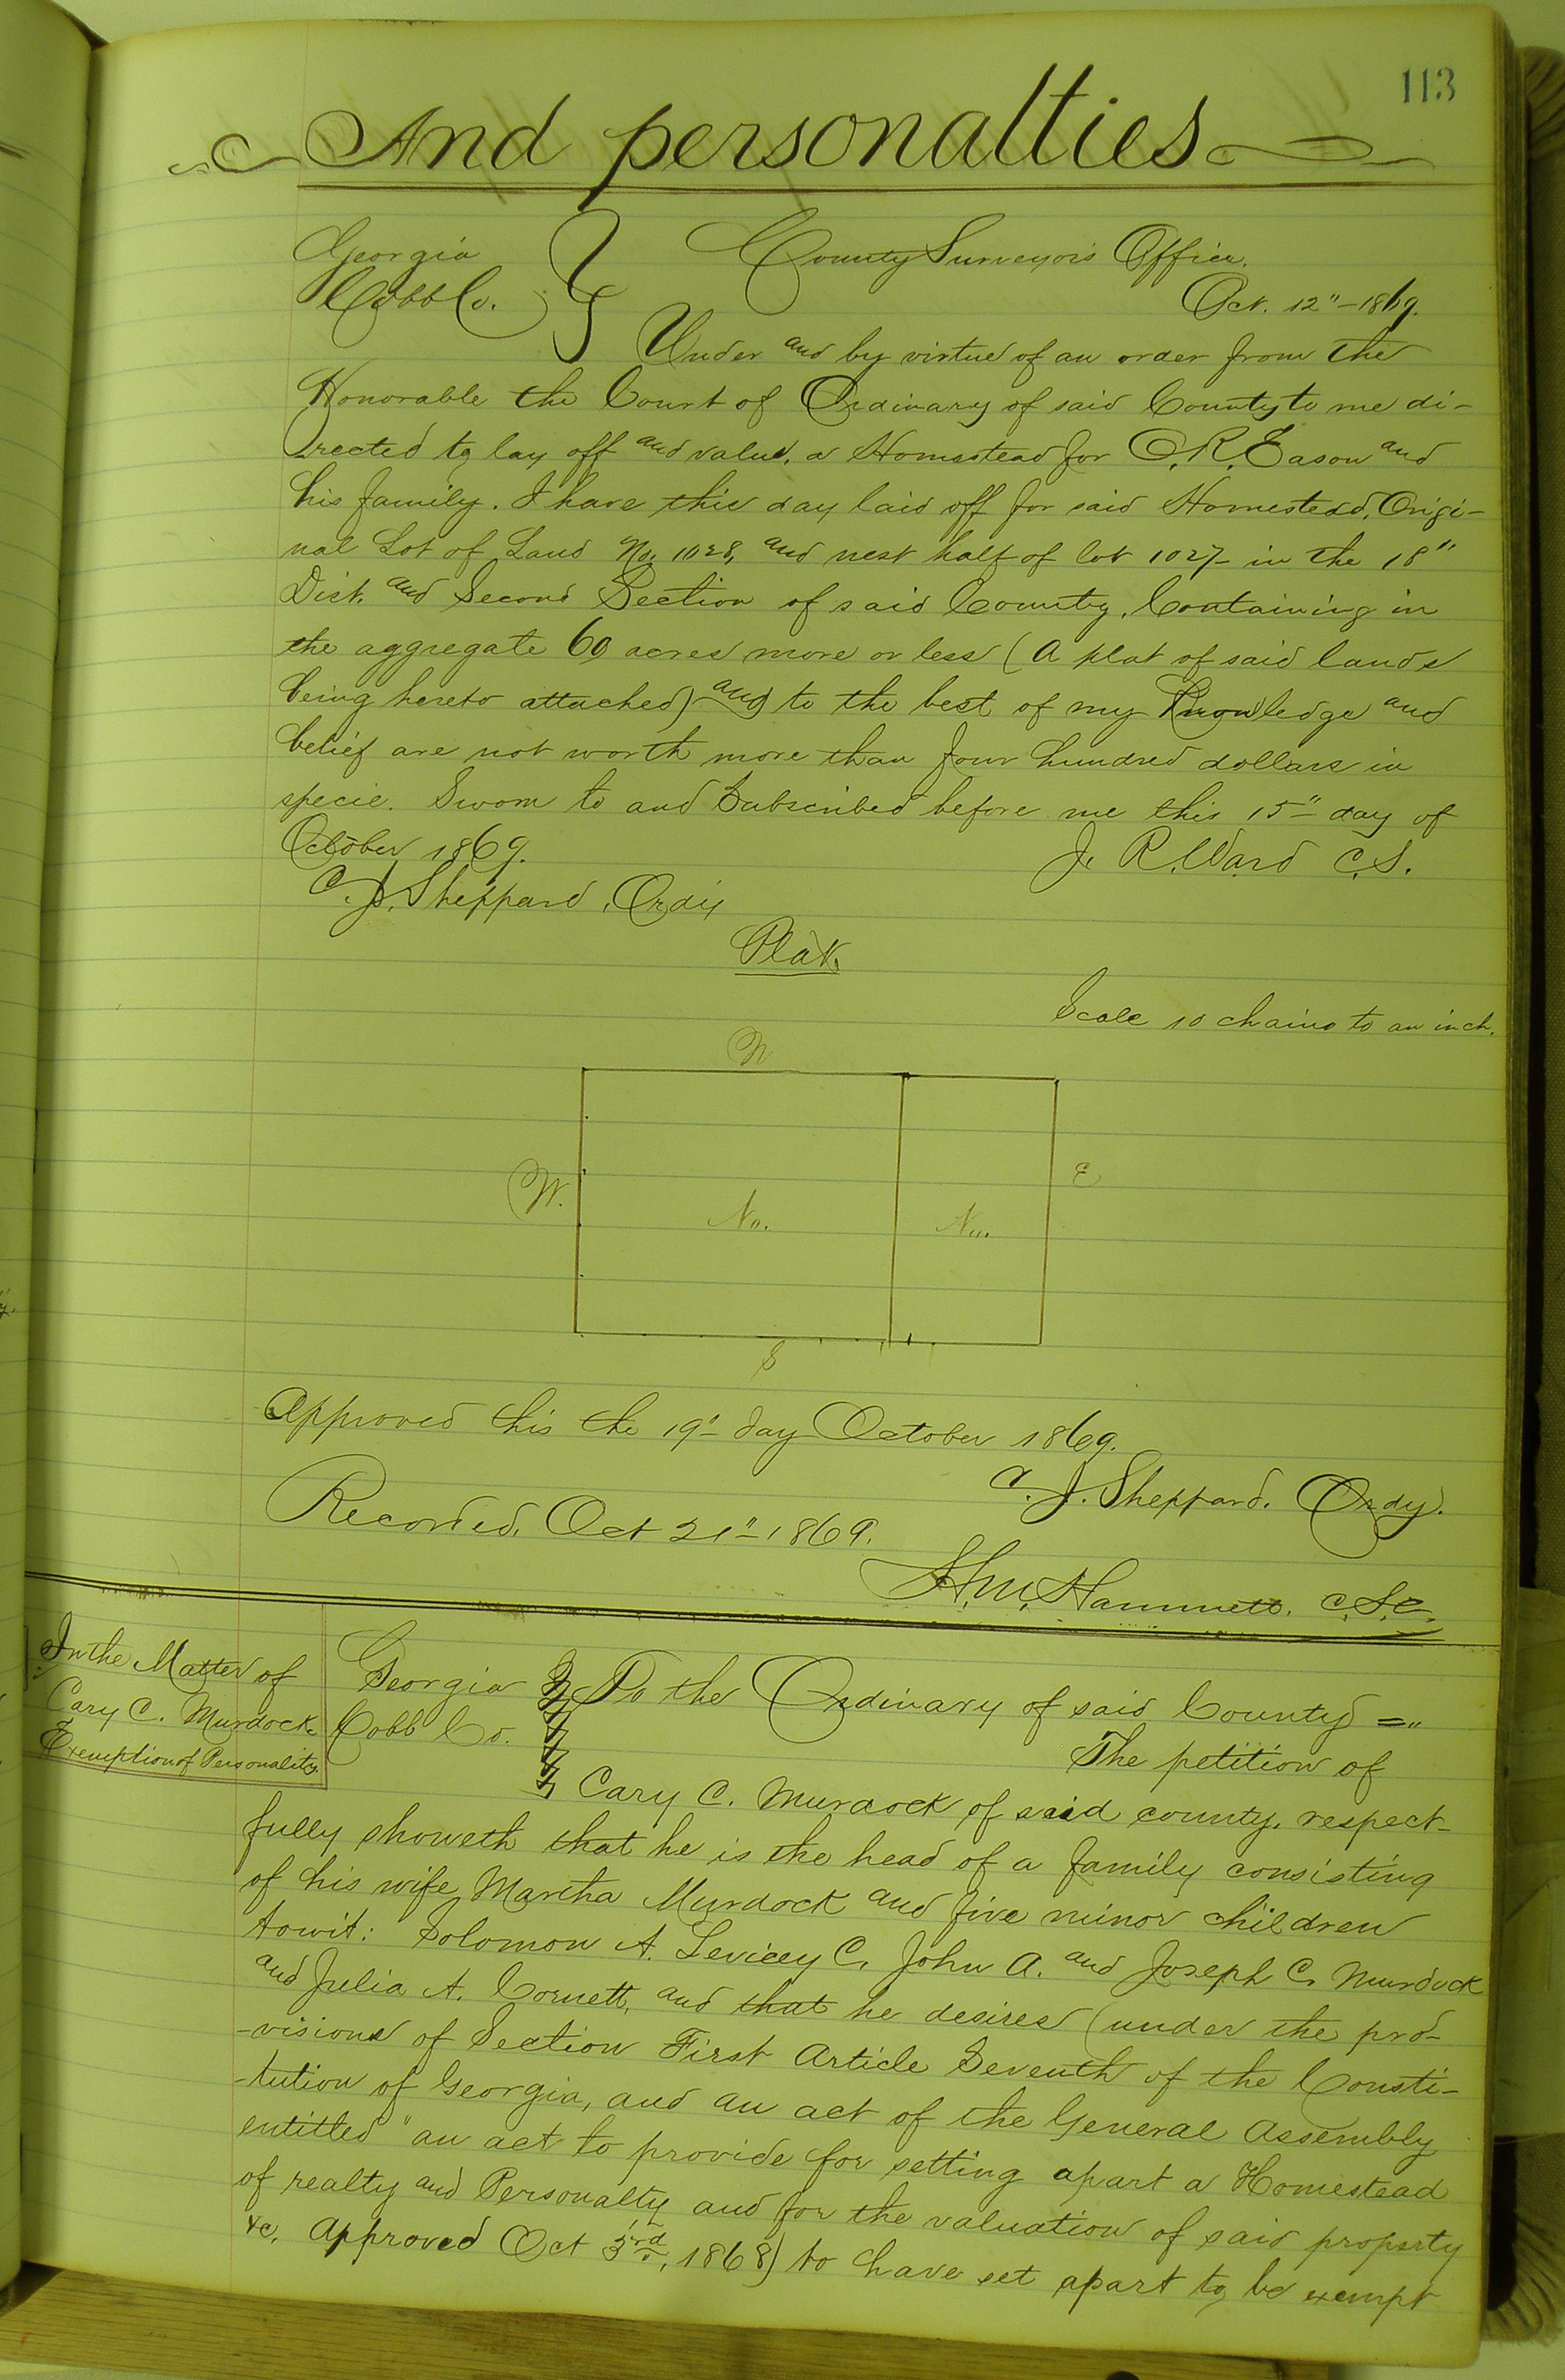 113
And personalties
Georgia
Cobb Co.
County Surveyors Office.
Oct. 12" - 1869.
Under and by virtue of an order from the
Honorable the Court of Ordinary of said County to me di-
rected to lay off and value, a Homestead for O. R. Eason and
his family. I have this day laid off for said Homestead, Origi-
nal Lot of Land No. 1028, and west half of lot 1027 - in the 18"
Dist. and Second Section of said County. Containing in
the aggregate 60 acres more or less (A plat of said lands
being hereto attached) and to the best of my Knowledge and
belief are not worth more than four hundred dollars in
specie. Sworn to and Subscribed before me this 15" day of
October 1869.
J. R. Ward C.S.
C. J. Sheppard, Ordy
Plat.
Scale 10 chains to an inch.
N
W.
E
No.
No.
S
Approved this the 19" day October 1869.
C. J. Sheppard. Ordy.
Recorded, Oct 21" - 1869.
H. M. Hammett. C.S.C.
In the Matter of
Cary C. Murdock.
Exemption of Personality.
Georgia
Cobb Co.
To the Ordinary of said County = "
The petition of
Cary C. Murdock of said county. respect-
fully showeth that he is the head of a family consisting
of his wife Martha Murdock and five minor children
towit: Solomon A. Levicey C. John A. and Joseph C. Murdock
and Julia A. Cornett, and that he desires (under the pro-
-visions of Section First Article Seventh of the Consti-
-tution of Georgia, and an act of the General Assembly
entitled "an act to provide for setting apart a Homestead
of realty and Personalty and for the valuation of said property
&c. Approved Oct 3rd, 1868) to have set apart to be exempt